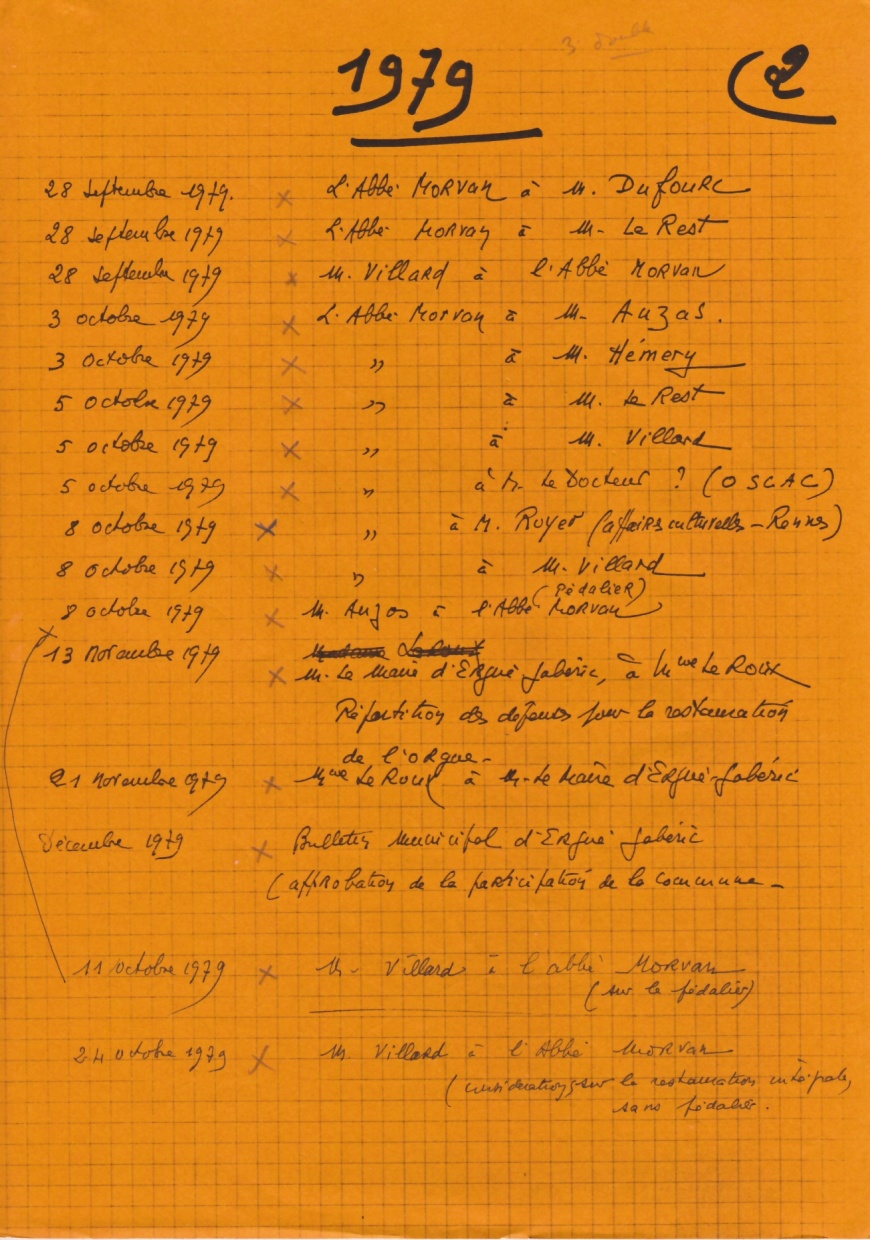 3 double
1979 (2
28 septembre 1979. x L'Abbé MORVAN à M. DUFOURC
28 septembre 1979 x L'Abbé MORVAN à M. Le Rest
28 septembre 1979 x M. Villard à l'Abbé MORVAN
3 octobre 1979 x L'Abbé Morvan à M. Auzas.
3 octobre 1979 x " à M. Hémery
5 octobre 1979 x " à M. Le Rest
5 octobre 1979 x " à M. Villard
5 octobre 1979 x " à M. Le Docteur ? (OSCAC)
8 octobre 1979 x " à M. Royer (affaires culturelles - Rennes)
8 octobre 1979 x " à M. Villard
(pédalier)
8 octobre 1979 x M. Auzas à l'Abbé MORVAN
x
13 novembre 1979 Madame Le Roux
x M. Le Maire d'Ergué gabéric, à Mme Le Roux
Répartition des dépenses pour la restauration
de l'orgue -
21 novembre 1979 x Mme Le Roux à M. Le Maire d'Ergué-Gabéric
Décembre 1979 x Bulletin Municipal d'Ergué gabéric
(approbation de la participation de la commune -
11 octobre 1979 x M. Villard à l'abbé MORVAN
(sur le pédalier)
24 octobre 1979 x M. Villard à l'Abbé MORVAN
(considérations sur la restauration intégrale,
sans pédalier.